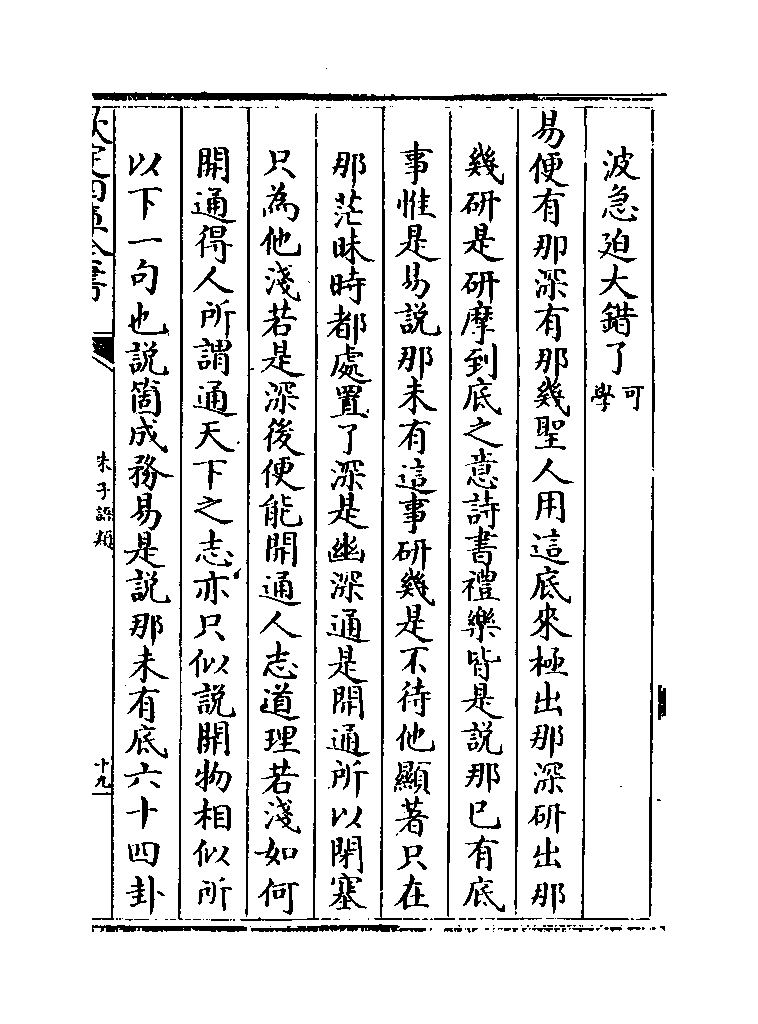 波急迫大錯了可學
易便有那深有那幾聖人用這底來極出那深研出那
幾研是研摩到底之意詩書禮樂皆是說那已有底
事惟是易說那未有這事研幾是不待他顯著只在
那茫昧時都處置了深是幽深通是開通所以閉塞
只為他淺若是深後便能開通人志道理若淺如何
開通得人所謂通天下之志亦只似說開物相似所
以下一句也說箇成務易是說那未有底六十四卦
欽定四庫全書
朱子語類
十九